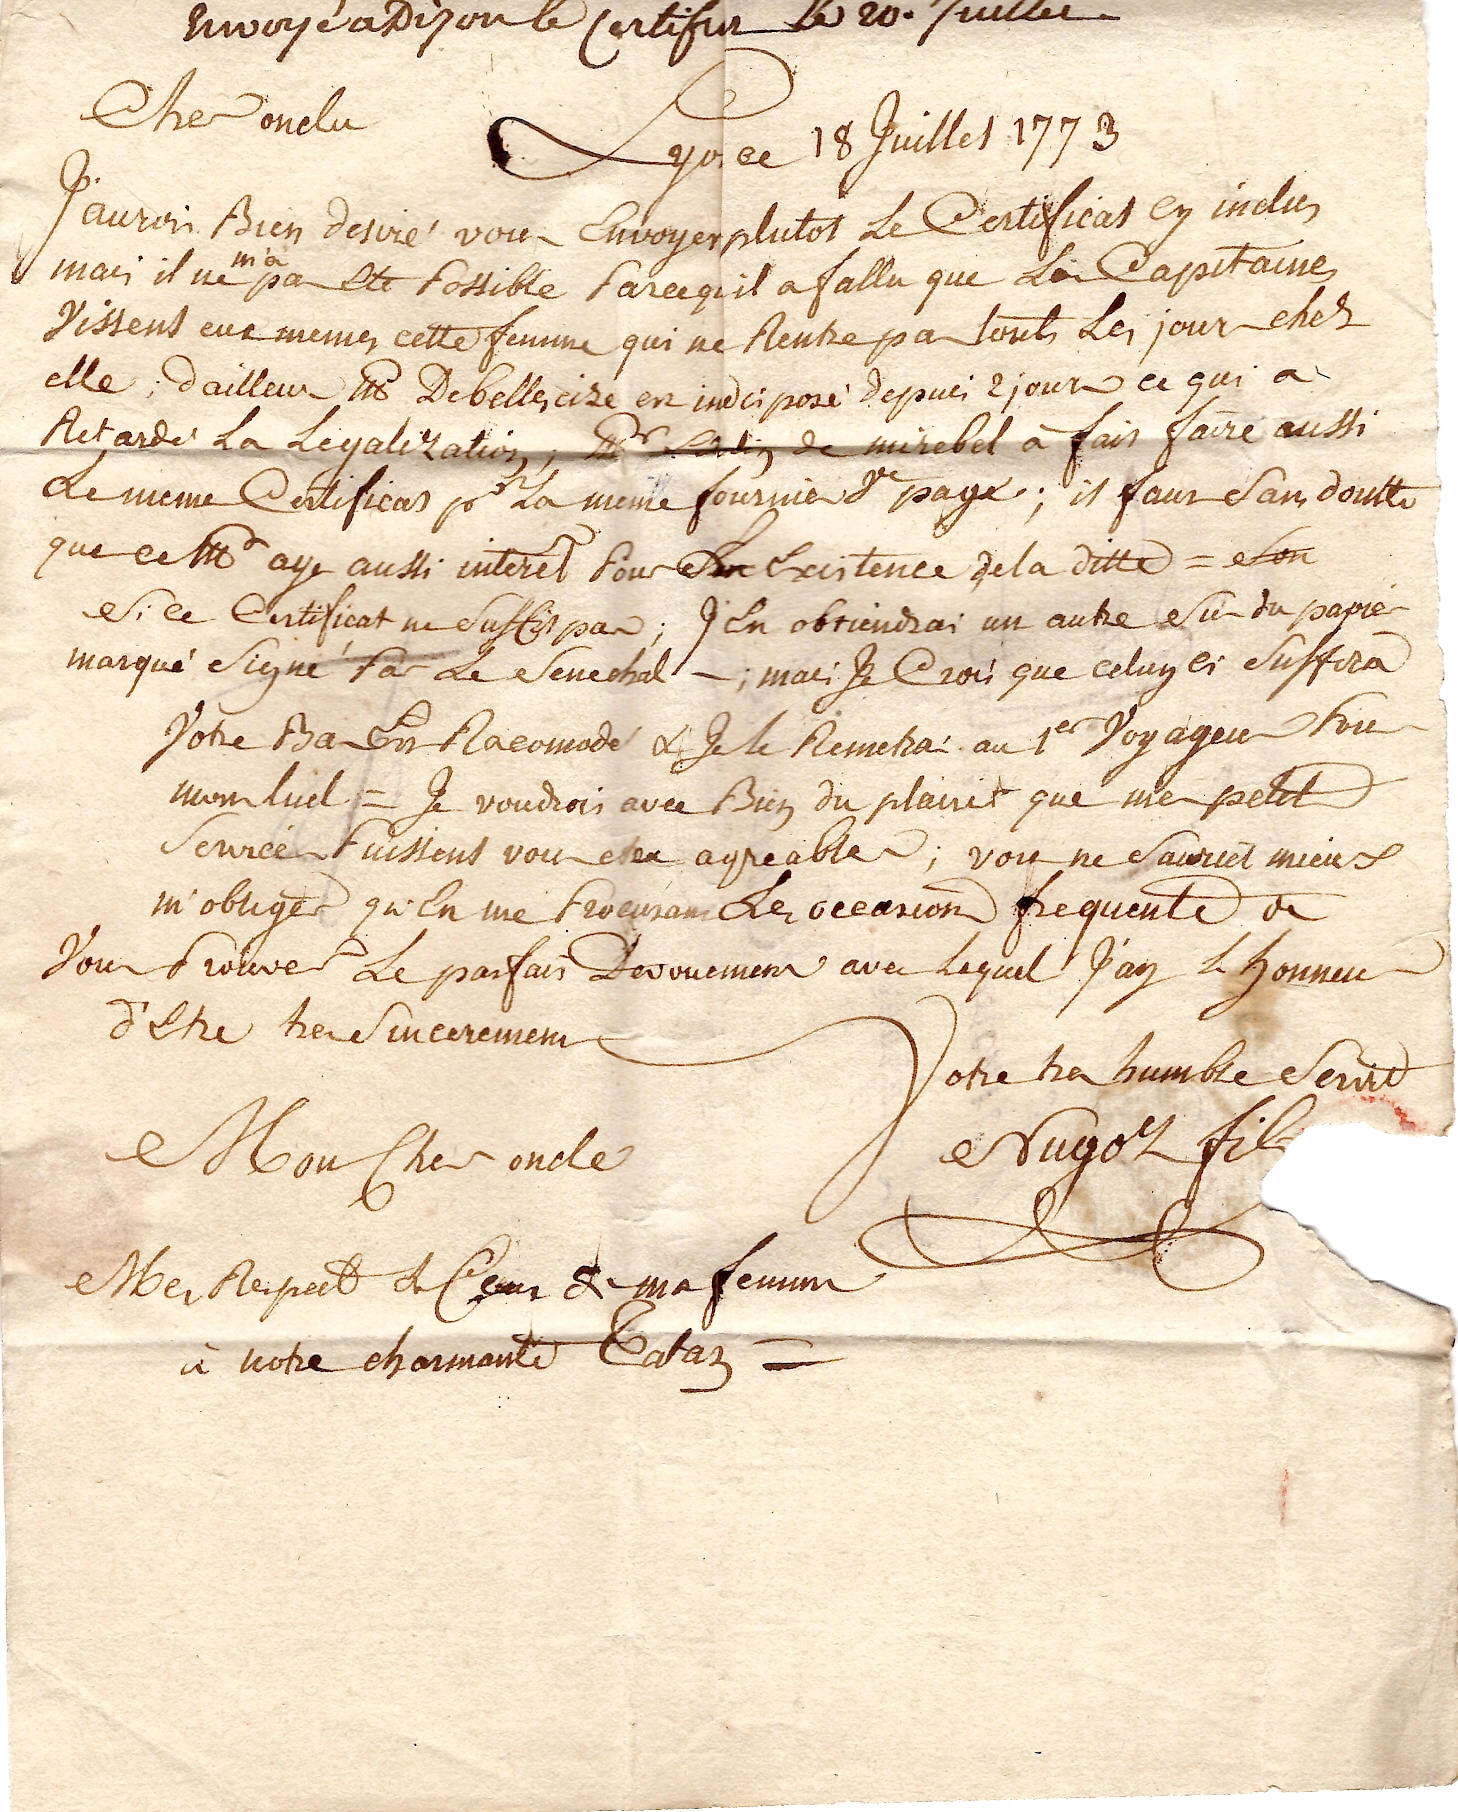 Envoyé a Dijon le Certificat le 20. Juillet
Cher oncle
Lyon ce 18 Juillet 1773
J'aurois Bien desiré vous Envoyer plutot Le Certificat Cy inclus
mais il ne m'a pas ete Possible Parcequ'il a fallu que Les Capitaines
Vissent eux memes cette femme qui ne Rentre pas touts Les jours chez
elle; d'ailleurs Mr Debellescize est indisposé depuis 2 jours ce qui a
Retardé La Legalization; Mr de mirebel à fait faire aussi
Le meme Certificat pr La meme fournier Ve page; il faut Sans doutte
que ce Mr aye aussi interet Pour Existence de la ditte = Son
Si ce Certificat ne Suffit pas; J'En obtiendrai un autre Sur du papier
marqué Signé Par Le Senechal -; mais Je Crois que celuy ci Suffira
Votre Bas Est Racomodé & Je le Remetrai au 1er Voyageur Pour
montluel = Je voudrois avec Bien du plaisir que mes petits
Services Puissent vous etre agreables; vous ne Sauriet mieux
m'obliger qu'En me Procurant Les occasions frequente de
Vous Prouver Le parfait Devouement avec Lequel J'ay L'honneur
d'Etre tres Sincerement
Votre tres humble Servt
Mon Cher oncle
Nugoz fils
Mes Respects & Ceux de ma femme
à notre charmante Tatan =